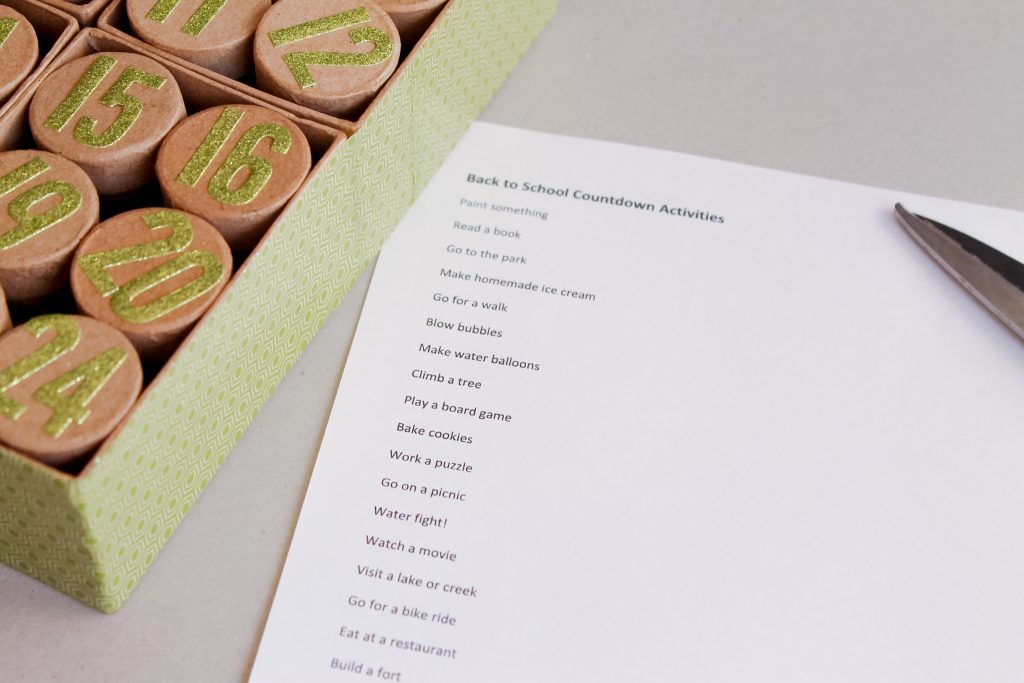 11
12
15
16
19
20
24
Back to School Countdown Activities
Paint something
Read a book
Go to the park
Make homemade ice cream
Go for a walk
Blow bubbles
Make water balloons
Climb a tree
Play a board game
Bake cookies
Work a puzzle
Go on a picnic
Water fight!
Watch a movie
Visit a lake or creek
Go for a bike ride
Eat at a restaurant
Build a fort